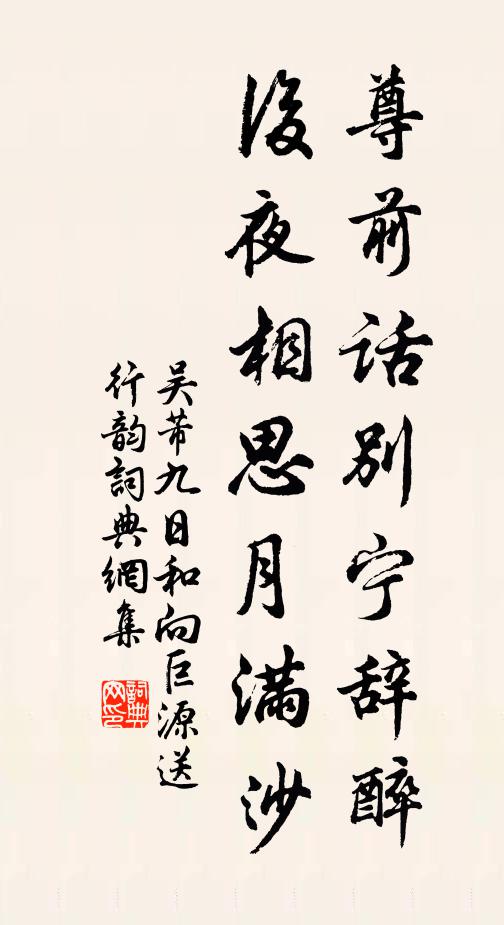 尊前话别宁辞醉
後夜相思月满沙
吴芾九日和向巨源送
行韵詞典網集
詞典網印